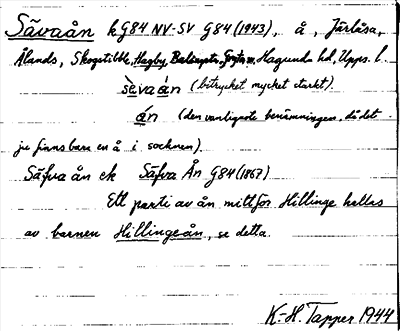 Sävaån k G84 NV-SV G84 (1943), å, Järlåsa,
Ålands, Skogstibble, Hagby, Balingsta, Hagunda hd, Upps. l.
sèvaán (bitrycket mycket starkt).
án (den vanligaste benämningen, då det
ju finns bara en å i socknen).
Säfva ån ek Säfva Ån G84 (1867)
Ett parti av ån mittför Hillinge kallas
av barnen Hillingeån, se detta.
K.-H. Tapper 1944